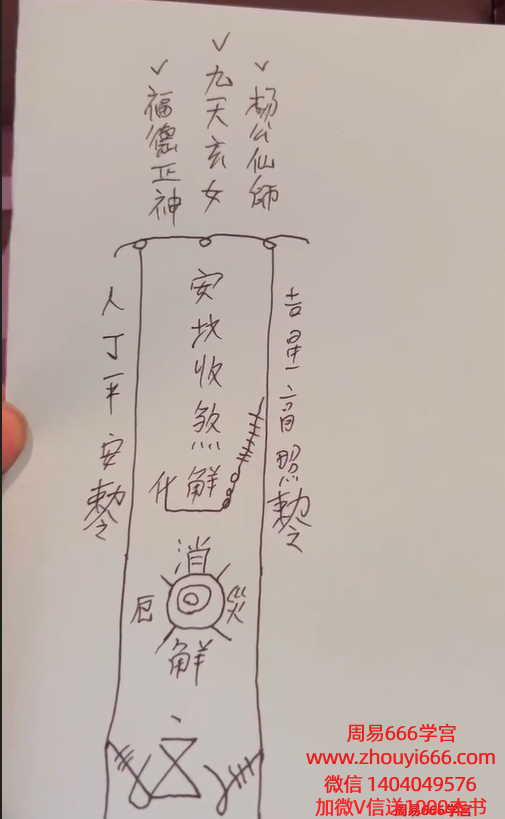 杨公仙師
九天玄女
福德正神
吉星高照勅令
人丁平安勅令
安坟收煞解化
消災解厄
周易666学宫
www.zhouyi666.com
微信 1404049576
加微V信送1000本书
周易666学宫